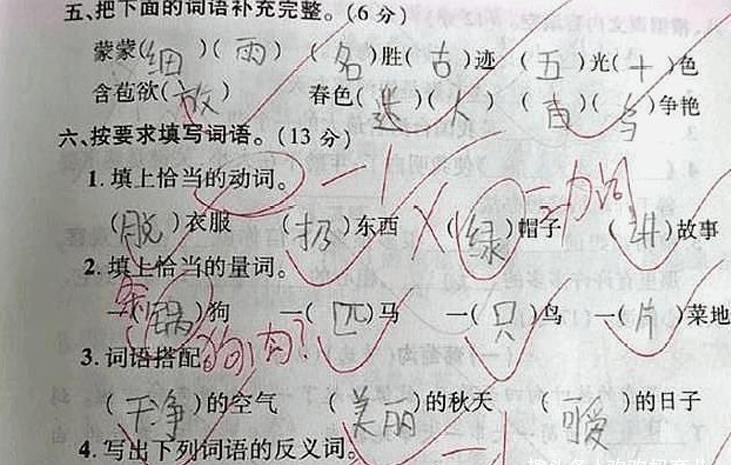 五、把下面的词语补充完整。(6分)
蒙蒙(细)(雨) (名)胜(古)迹 (五)光(十)色
含苞欲(放) 春色(迷)(人) (百)(鸟)争艳
六、按要求填写词语。(13分)
1. 填上恰当的动词。 -1 动词
(脱)衣服 (扔)东西 (绿)帽子 (讲)故事
2. 填上恰当的量词。
条
一(锅)狗 一(匹)马 一(只)鸟 一(片)菜地
狗肉?
3. 词语搭配
(干净)的空气 (美丽)的秋天 (可爱)的日子
4. 写出下列词语的反义词。